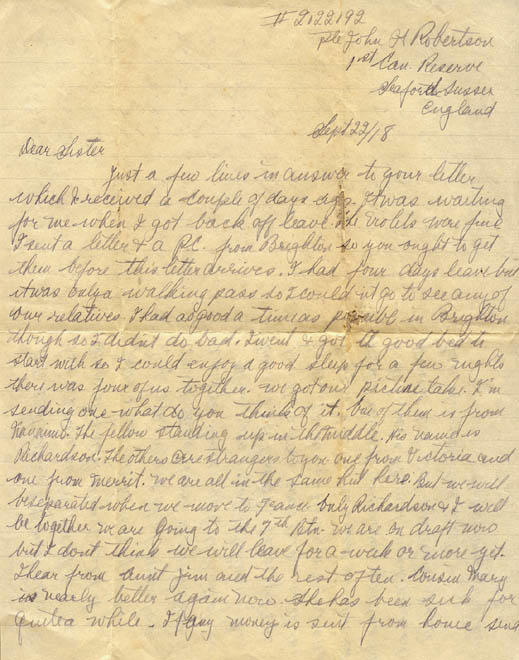 # 2022192
Pte John H Robertson
1st Can. Reserve
Seaford Sussex
England
Sept 22/18
Dear Sister
Just a few lines in answer to your letter
which I received a couple of days ago. It was waiting
for me when I got back off leave. The violets were fine
I sent a letter & a P.C. from Brighton so you ought to get
them before this letter arrives. I had four days leave but
it was only a walking pass so I could n't go to see any of
our relatives. I had as good a time as possible in Brighton
though so I didn't do bad. I went & got a good bed to
start with so I could enjoy a good sleep for a few nights
there was four of us together. we got our picture taken. I'm
sending one what do you think of it. One of them is from
The fellow standing up in the middle. His name is
Richardson. The others are strangers to you one from Victoria and
one from Merrit. we are all in the same hut here. But we will
be separated when we move to France only Richardson & I will
be together we are going to the 7th Btn. we are on draft now
but I dont think we will leave for a week or more yet.
I hear from Aunt Jim and the rest often. Cousin Mary
is nearly better again now. She has been sick for
quite a while. If any money is sent from home send